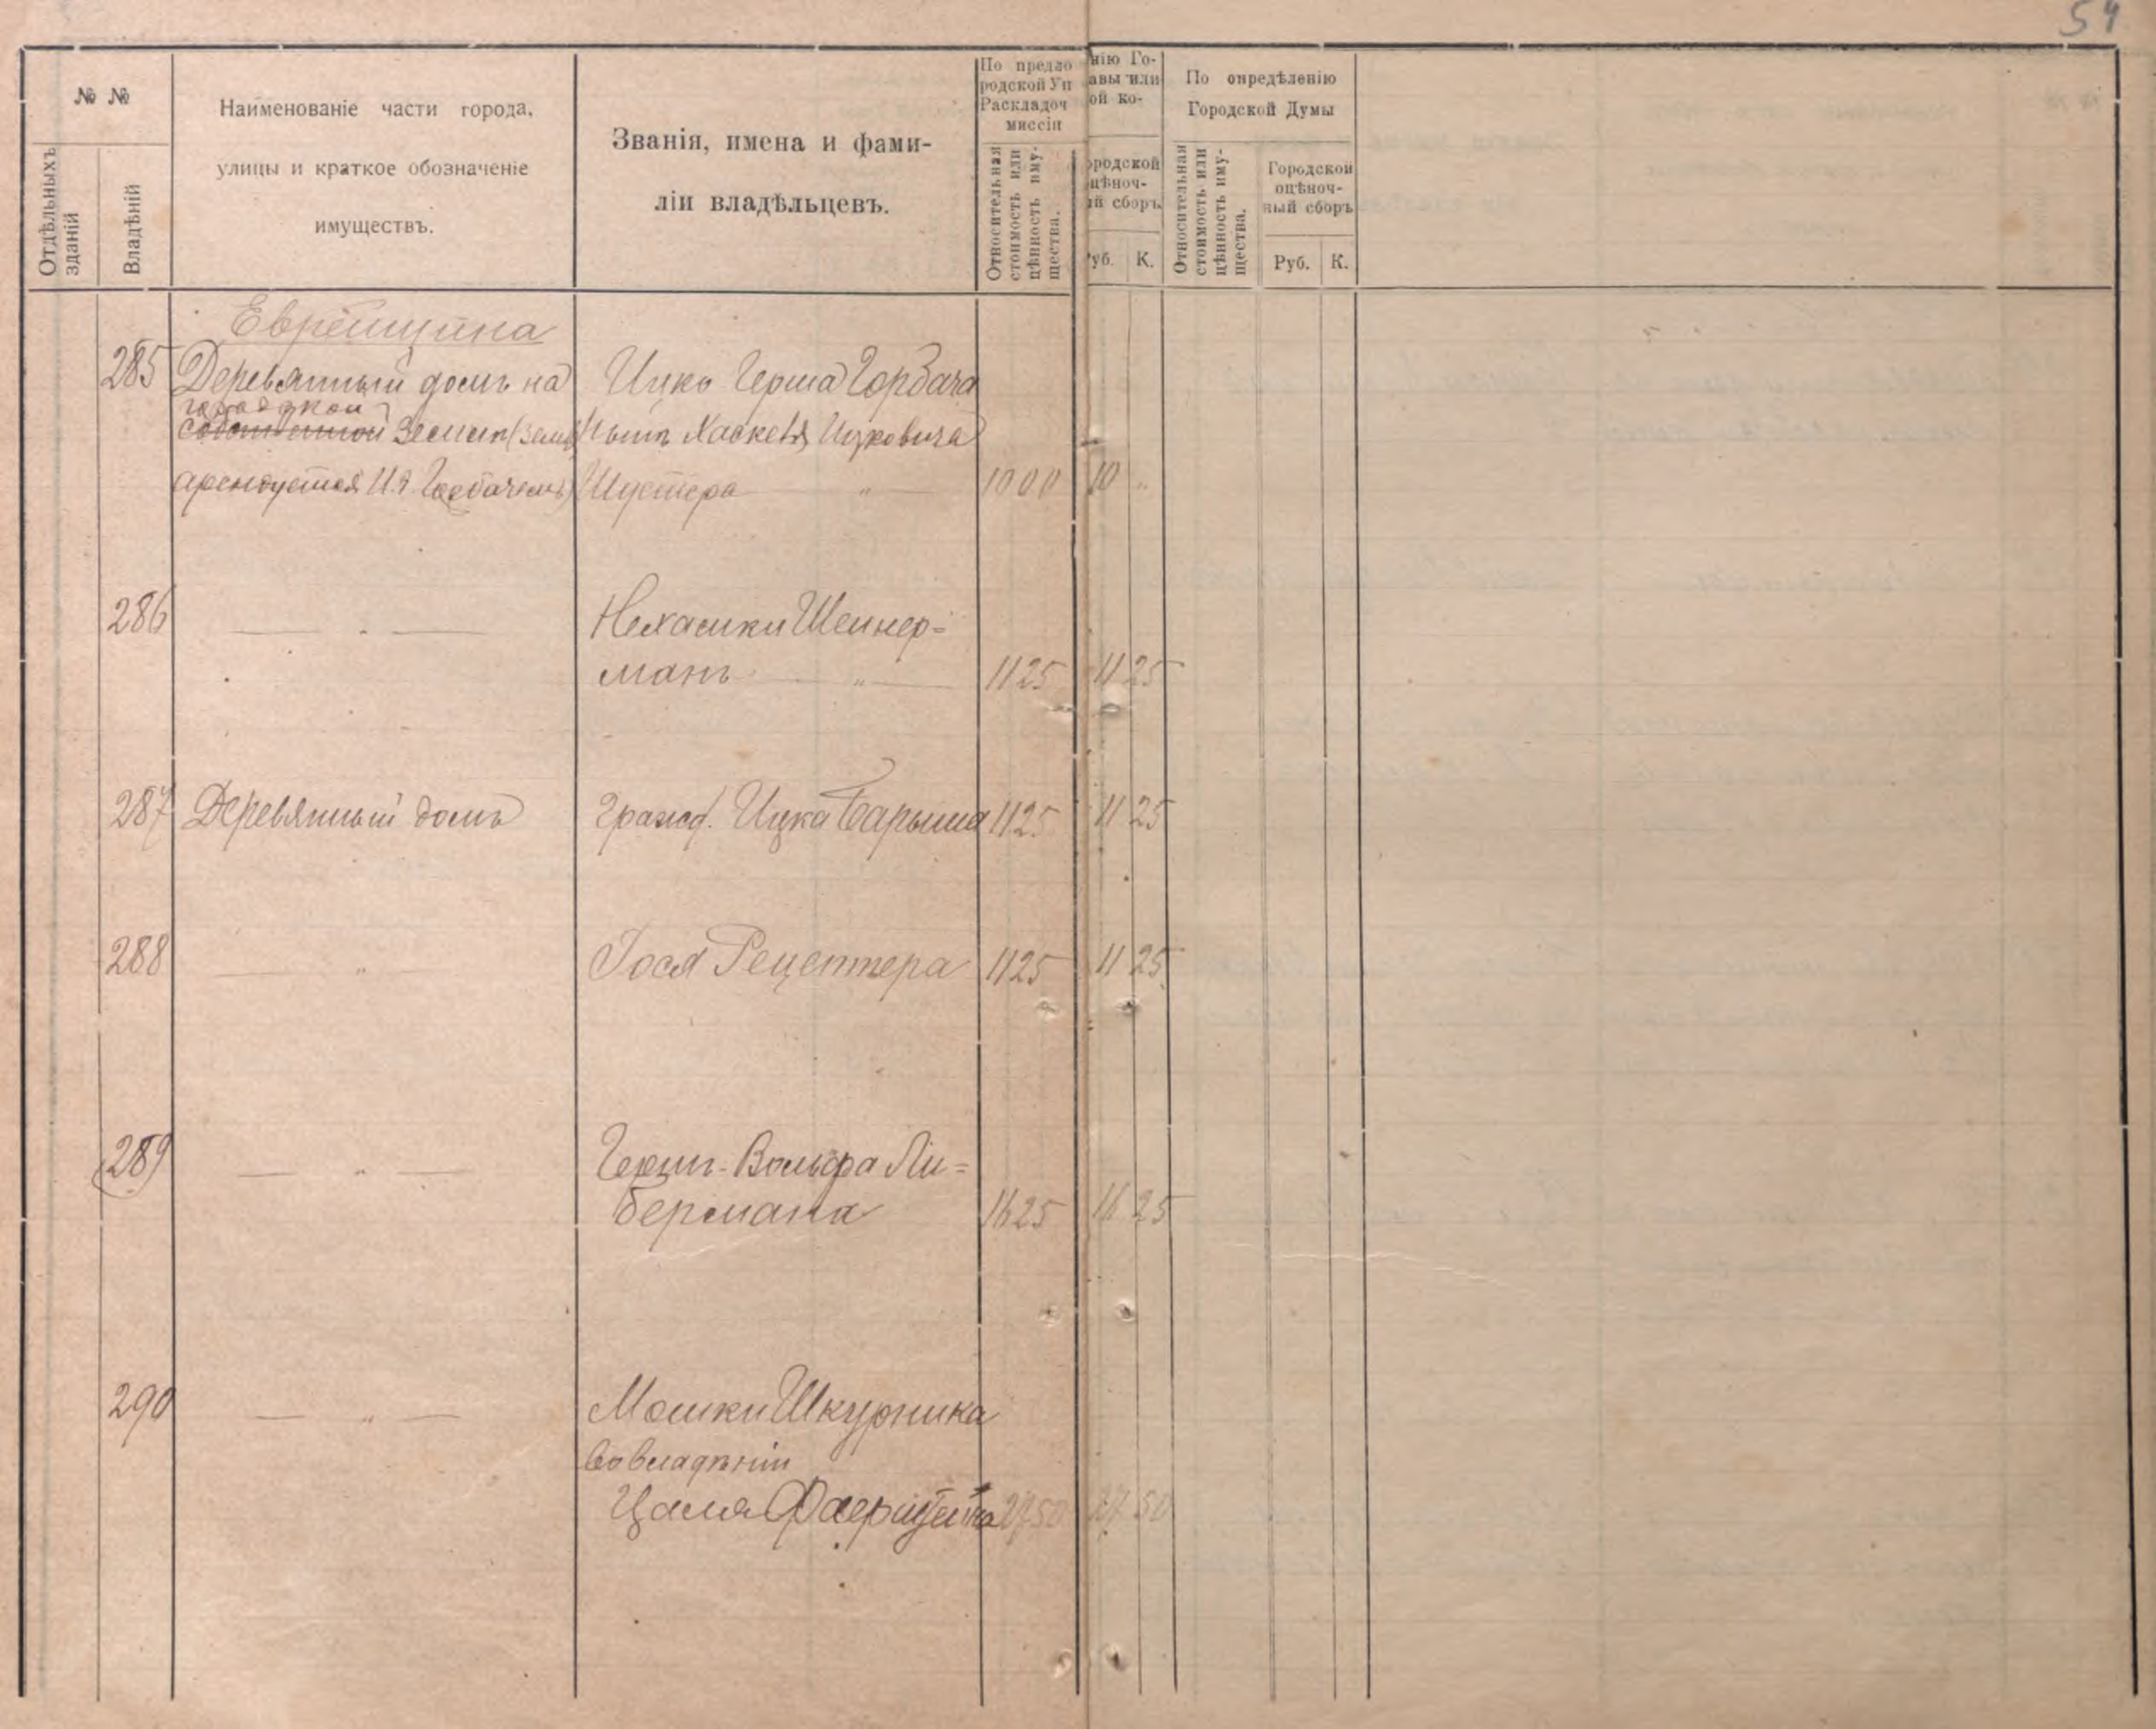 54
№ №
Отдѣльныхъ зданій
Владѣній
Наименованіе части города,
улицы и краткое обозначеніе
имуществъ.
Званія, имена и фами-
ліи владѣльцевъ.
По предло
родской Уп
Раскладоч
миссіи
Относительная
стоимость или
цѣнность иму-
щества.
нію Го-
авы или
ой ко-
ородской
цѣноч-
ій сборъ
Руб. К.
По опредѣленію
Городской Думы
Относительная
стоимость или
цѣнность иму-
щества.
Городской
оцѣноч-
ный сборъ
Руб. К.
Еврейщина
285 Деревянный домъ на Ицко Герша Горбача
городской
собственной земли (земля Хаскеля Ицковича
арендуется И.Г. Горбачемъ) Шустера — " — 1000 10 "
286 — " — Нехамки Шейнер-
манъ — " — 1125 11 25
287 Деревянный домъ Гражд. Ицка Барыша 1125 11 25
288 — " Іося Рецептера 1125 11 25
289 — " — Герш-Вольфа Ли-
бермана 1625 16 25
290 — " — Мошки Шкурника
во владѣніи
Цаля Фаерштейна 2750 27 50